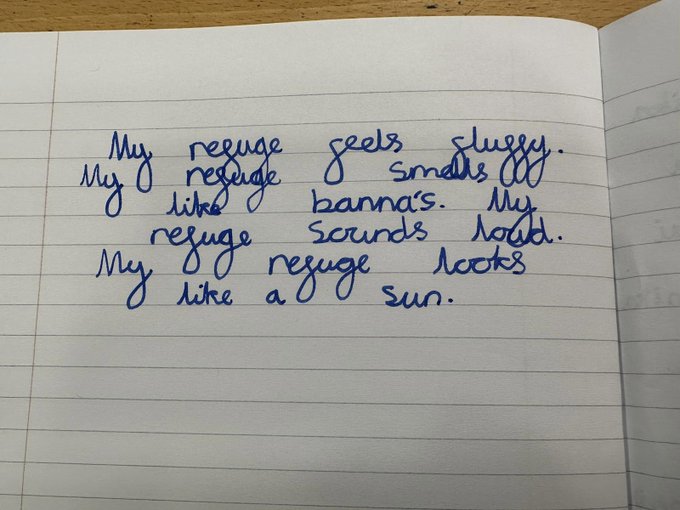 My refuge feels fluffy.
My refuge smells
like banna's. My
refuge sounds loud.
My refuge looks
like a sun.